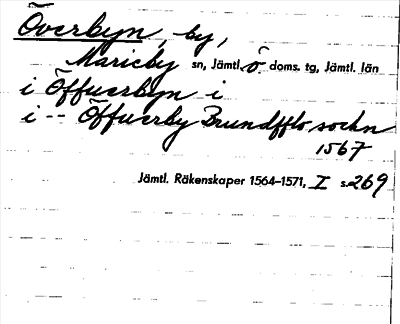 Överbyn, by,
Marieby sn, Jämtl. ö. doms. tg, Jämtl. län
i Öffuerbyn i
i -- Öffuerby Brundfflo sochn
1567
Jämtl. Räkenskaper 1564–1571, I s. 269